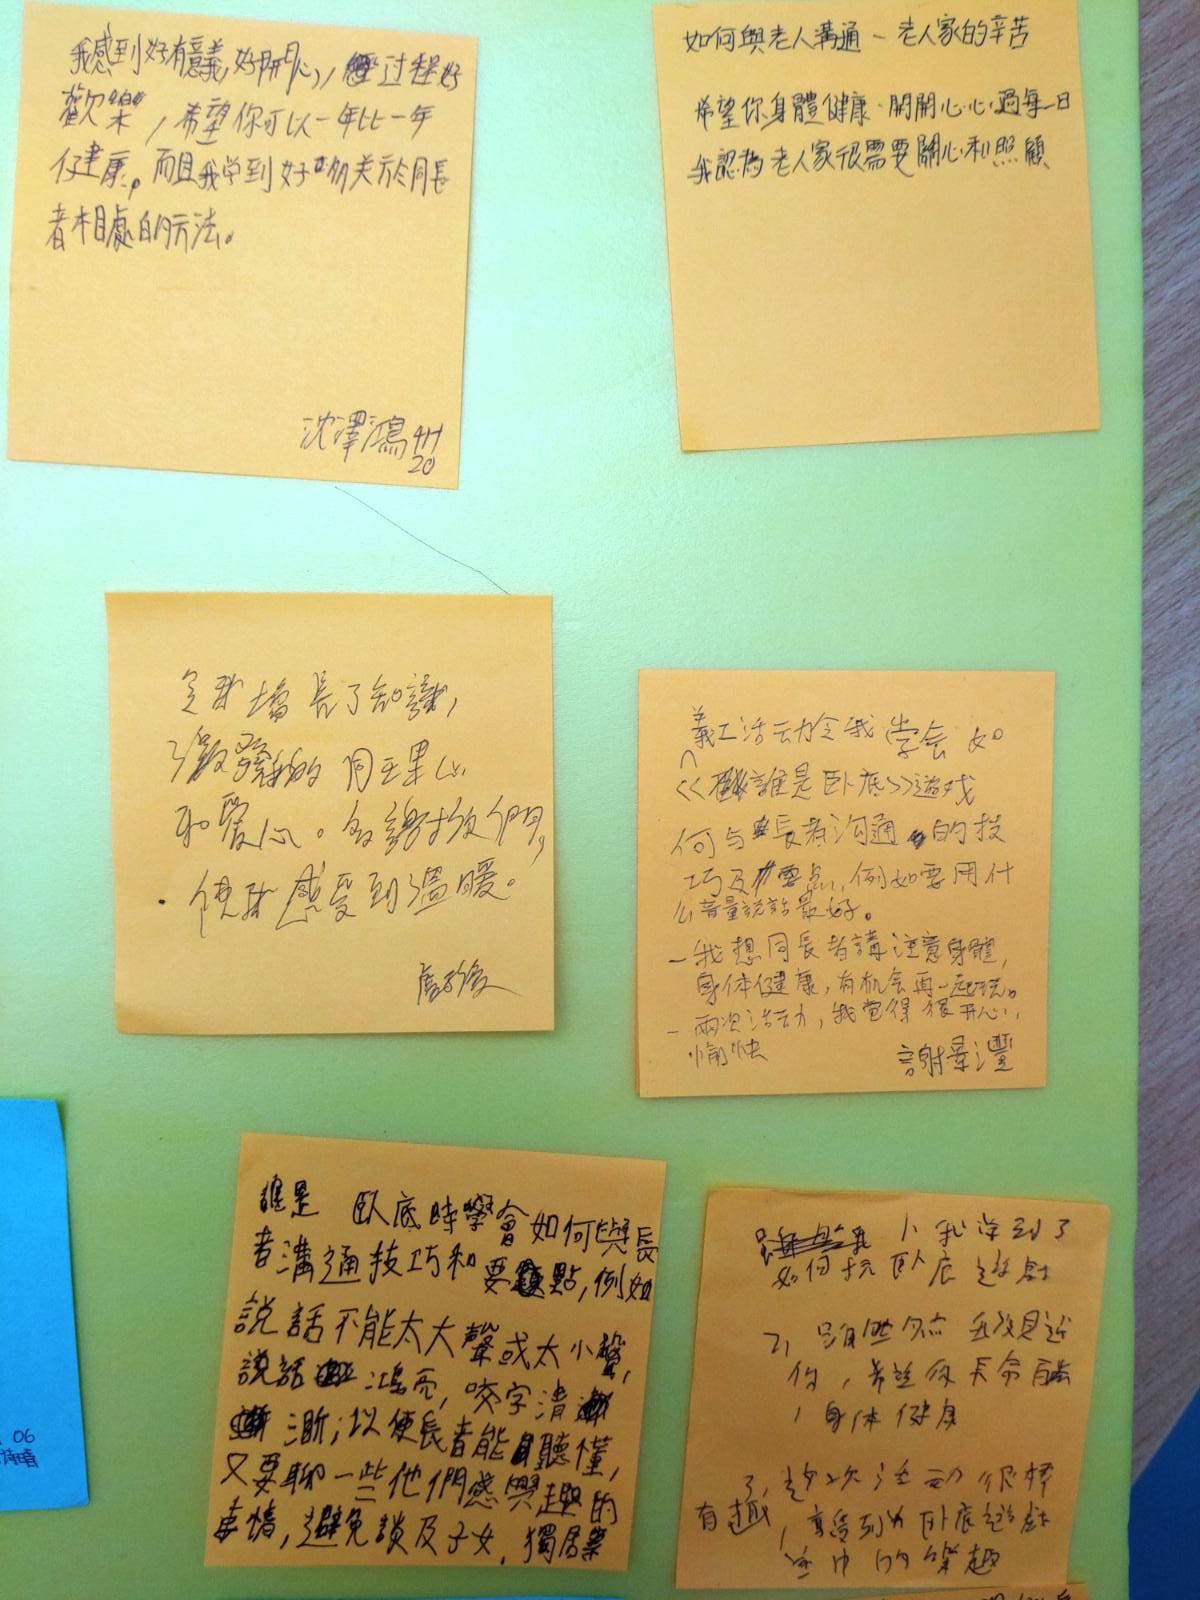 我感到好有意義,好開心,經过程好
歡樂,希望你可以一年比一年
健康。而且我学到好多关於同長
者相處的方法。
沈澤鴻 4H
20
如何與老人溝通 - 老人家的辛苦
希望你身體健康、開開心心過每一日
我認為老人家很需要關心和照顧
令我增長了知識,
激發我的同理心
和愛心。多謝你們,
使我感受到溫暖。
義工活动令我学会如
<<誰是卧底>>游戏
何与長者沟通的技
巧及要点,例如要用什
么音量説話最好。
- 我想同長者講注意身體,
身体健康,有机会再一起玩。
- 兩次活动,我觉得很开心,
愉快
謝景灃
誰是 臥底時學會如何與長
者溝通技巧和要點,例如
説話不能太大聲或太小聲,
説話 鴻亮,咬字清
淅;以便長者能聽懂,
又要聊一些他們感興趣的
事情,避免談及子女,獨居
1、我学到了
如何玩卧底遊戲
2、
你,希望你長命百歲
,身体健康
3、這次活动很棒
有趣,享受到卧底遊戲
當中的樂趣
06